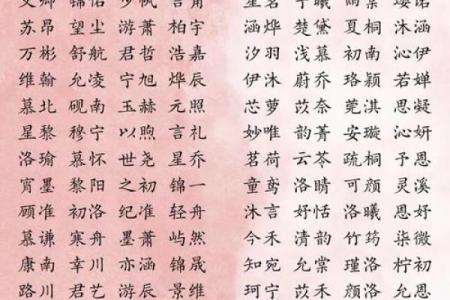 苏昂 望尘 游萧 言浩 涵烨 楚黛 慕桐 沐涵
万彬 舒航 君哲 柏嘉 汐羽 浅慕 初南 沁伊
维翰 允凌 宁旭 烨辰 伊沐 蔚乔 珞颖 若婵
慕北 砚南 玉赫 元照 芯萝 苡奈 莞淇 思凝
星黎 穆宁 以煦 言礼 妙唯 韵菁 安璇 沁妍
洛瑜 慕怀 世尧 星乔 茗荷 云苓 疏桐 予思
宵墨 黎阳 之初 锦一 童鸢 洛晴 可颜 灵溪
顾准 初洛 纪准 轻舟 沐言 妤恬 洛曦 思妤
慕谦 寒舟 墨萧 屿然 今禾 清韵 竹筠 柒微
康南 幸川 亦涵 锦晟 知宛 允棠 瑾洛 柠初
路川 君艺 游辰 景维 星禾 韵曦 洛颜 思允